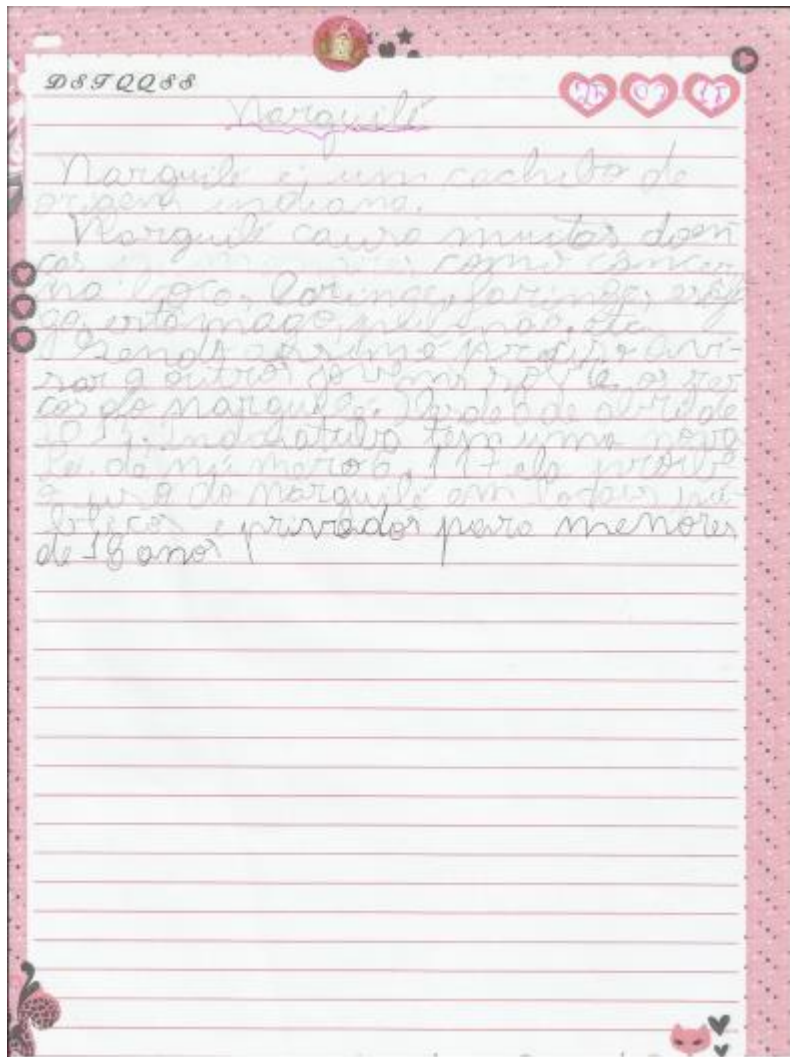 DSTQQSS
Narguilé
Narguile é um cachibo de
origem indiana.
Narguilé causa muitas doen
ças como câncer
na boca, Laringe, faringe, esôfa
go, estomago, pulmão, etc.
Sendo assim é preciso avi-
sar a outros jovens sobre os ris
cos do narguilé. Desde 6 de abril de
Indaiatuba tem uma nova
lei de número 6.117 ela proibe
o uso do narguilé em locais pú-
blicos e privados para menores
de 18 anos